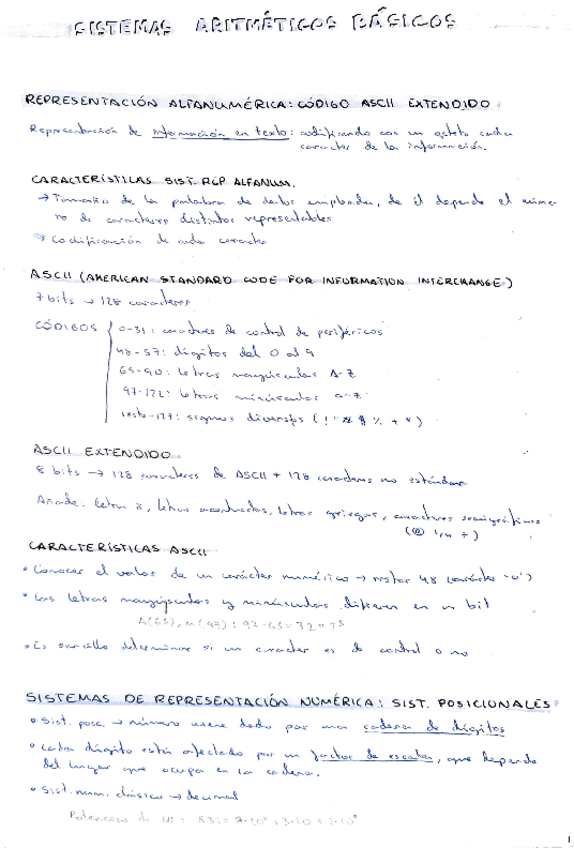 SISTEMAS ARITMÉTICOS BÁSICOS
REPRESENTACIÓN ALFANUMÉRICA: CÓDIGO ASCII EXTENDIDO
Representación de información en texto: codificando con un octeto cada
carácter de la información.
CARACTERÍSTICAS SIST. REP ALFANUM.
→ Tamaño de la palabra de datos empleada, de él depende el núme-
ro de caracteres distintos representables
→ Codificación de cada carácter
ASCII (AMERICAN STANDARD CODE FOR INFORMATION INTERCHANGE)
7 bits → 128 caracteres
CÓDIGOS { 0-31: caracteres de control de periféricos
48-57: dígitos del 0 al 9
65-90: letras mayúsculas A-Z
97-122: letras minúsculas a-z
resto-127: signos diversos
ASCII EXTENDIDO
8 bits → 128 caracteres de ASCII + 128 caracteres no estándar
Añade letra ñ, letras acentuadas, letras griegas, caracteres semigráficos
CARACTERÍSTICAS ASCII
• Conocer el valor de un carácter numérico → restar 48 (carácter '0')
• Las letras mayúsculas y minúsculas difieren en un bit
A(65), a(97): 97-65=32=2⁵
• Es sencillo determinar si un caracter es de control o no
SISTEMAS DE REPRESENTACIÓN NUMÉRICA: SIST. POSICIONALES
• Sist. posc. → número viene dado por una cadena de dígitos
• cada dígito está afectado por un factor de escala, que depende
del lugar que ocupa en la cadena.
• Sist. num. clásico → decimal
Potencias de 10: 
1